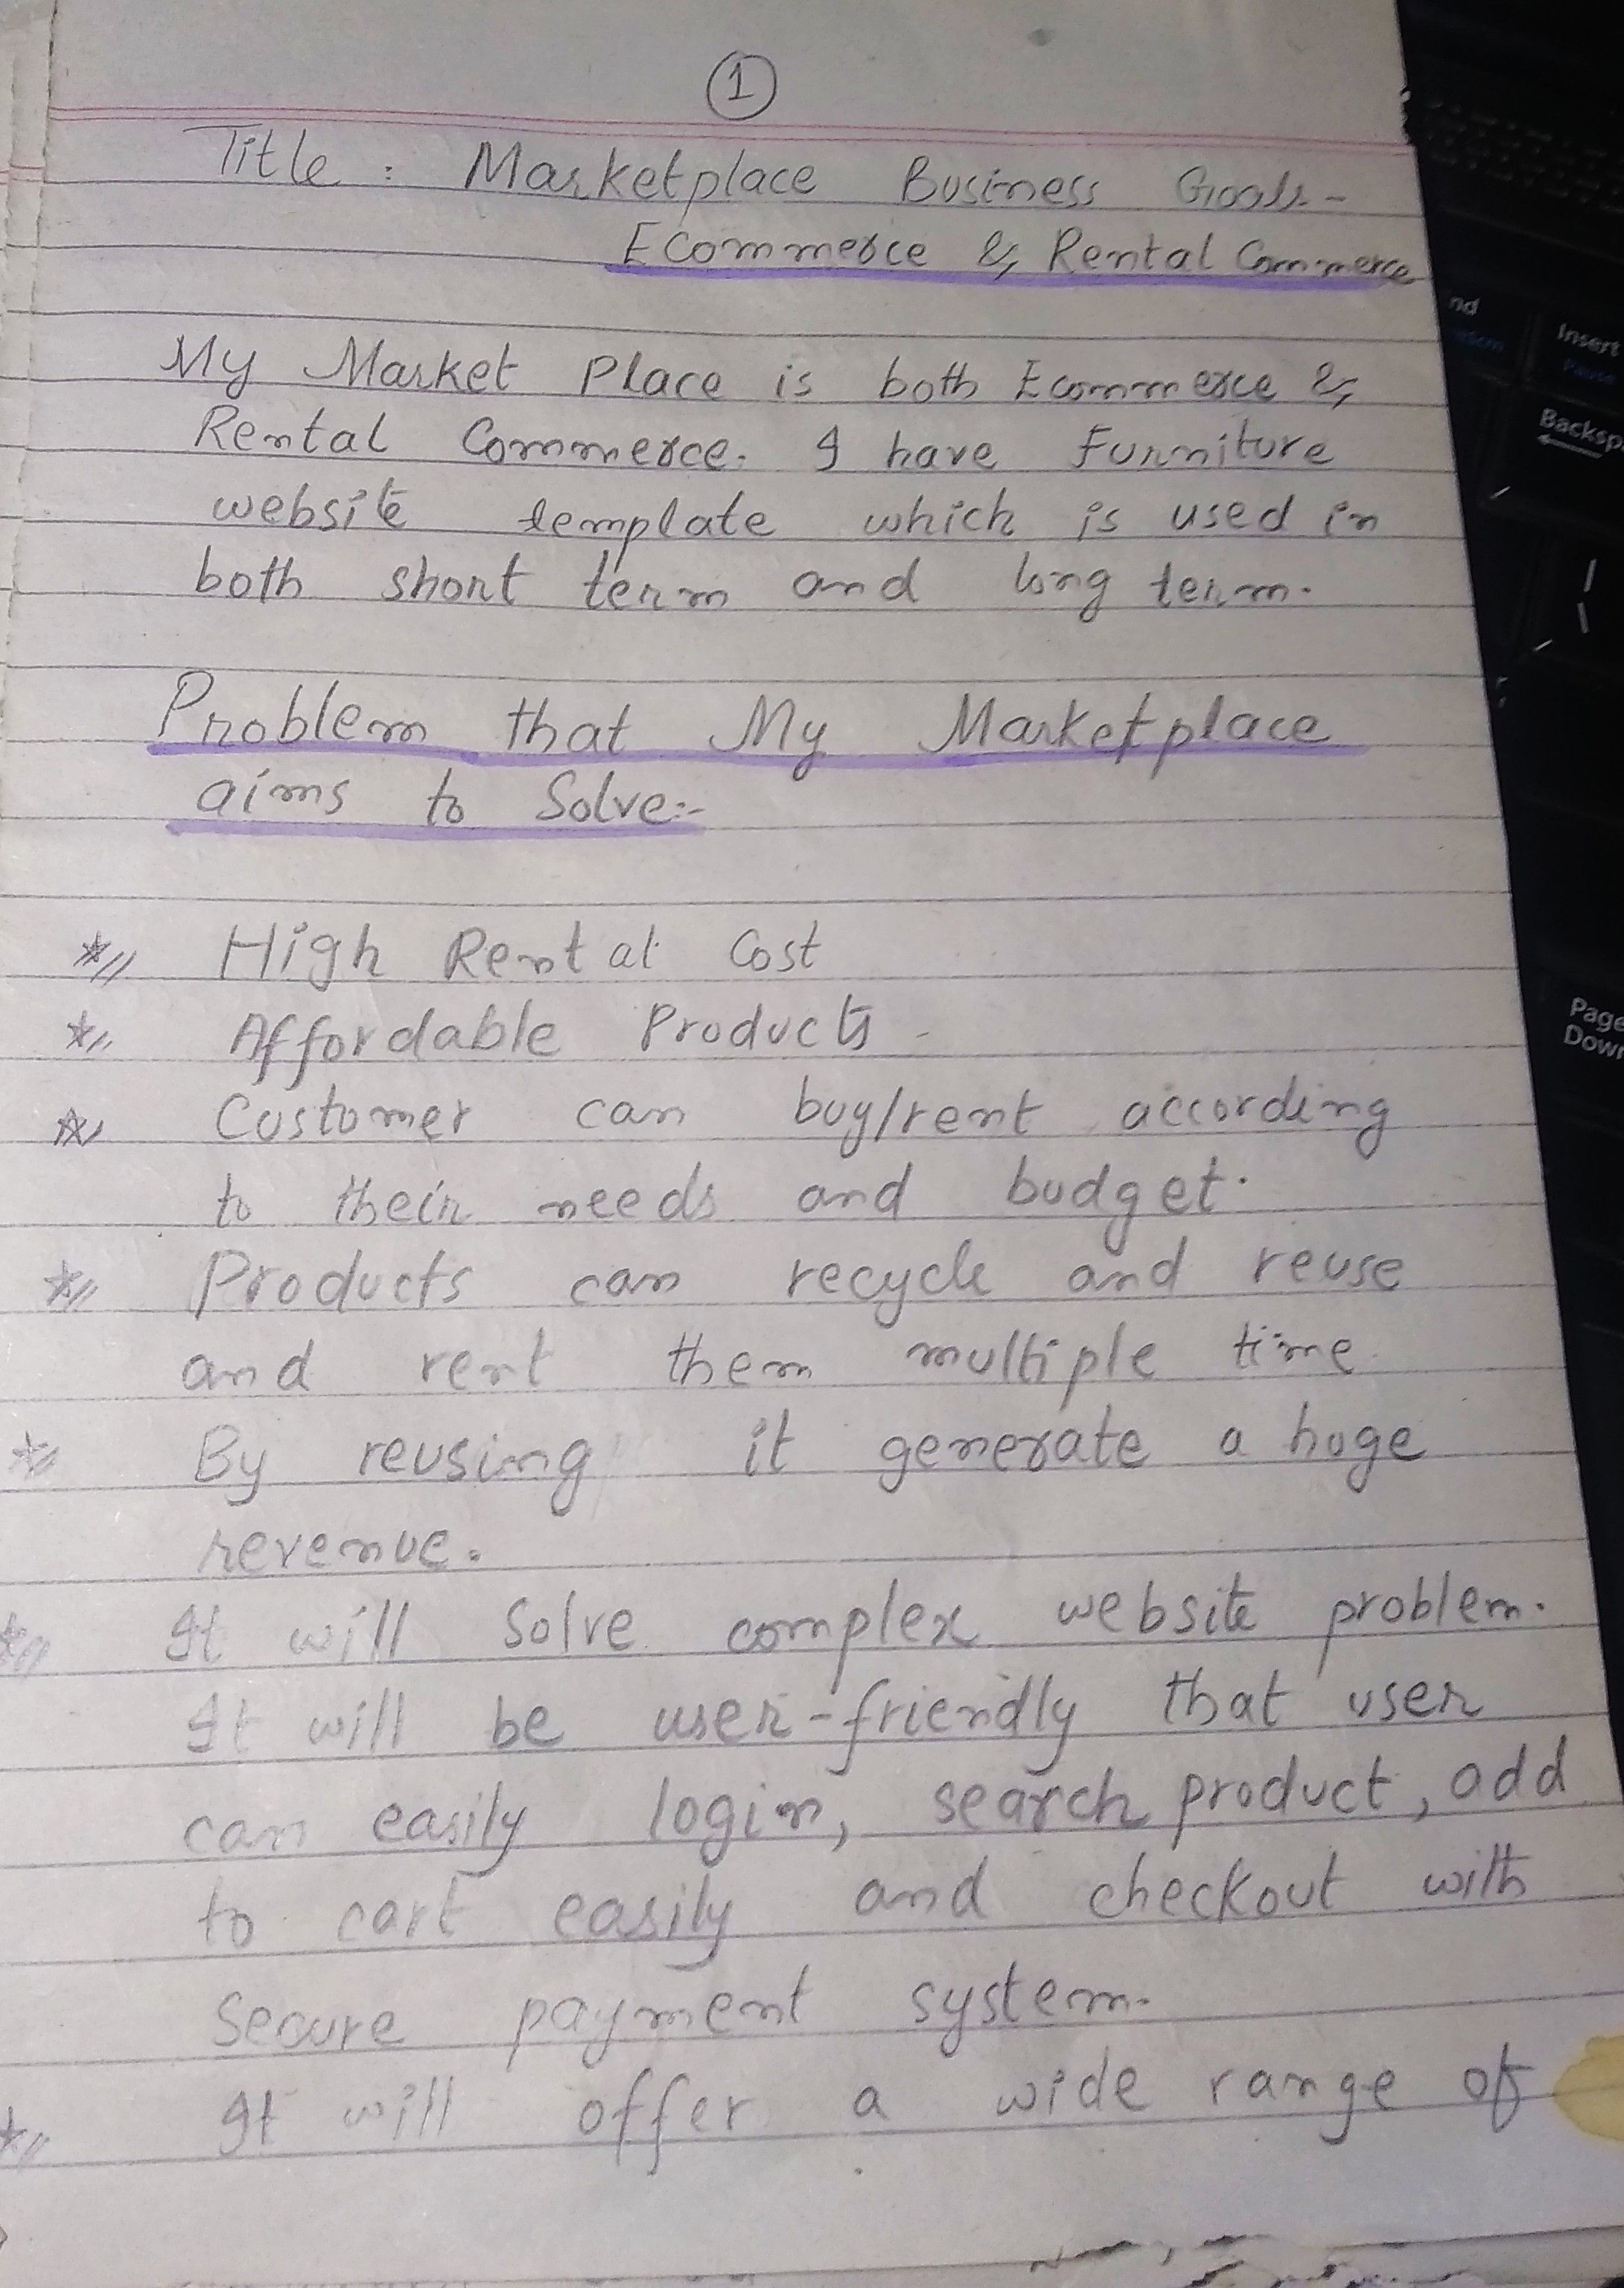 1
Title : Marketplace Business Goals -
Ecommerce & Rental Commerce
My Market Place is both Ecommerce &
Rental Commerce. I have Furniture
website template which is used in
both short term and long term.
Problem that My Marketplace
aims to Solve:-
* High Rental Cost
* Affordable Products
* Customer can buy/rent according
to their needs and budget.
* Products can recycle and reuse
and rent them multiple time
* By reusing it generate a huge
revenue.
* It will Solve complex website problem.
It will be user-friendly that user
can easily login, search product, add
to cart easily and checkout with
Secure payment system.
* It will offer a wide range of
nd
Insert
Pause
Backsp
Page
Down